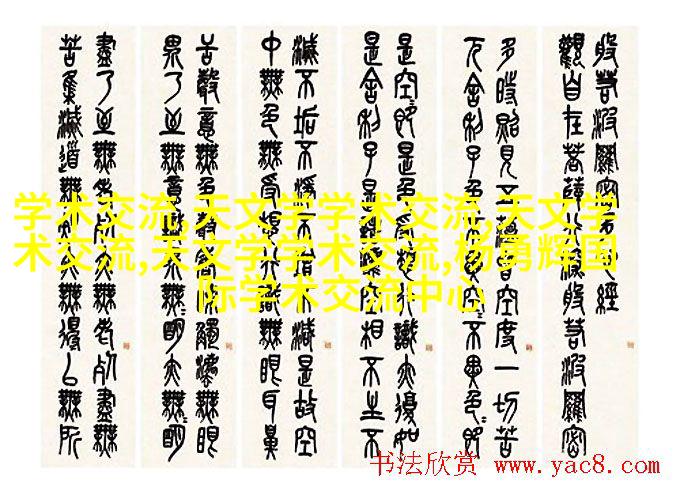 般若波羅密多心經
觀自在菩薩行深般若波羅密
多時照見五蘊皆空度一切苦
厄舍利子色不異空不異色即
是空即是色受想行識亦復如
是舍利子是諸法空相不生不
滅不垢不淨不增不減是故空
中無色無受想行識無眼耳鼻
舌身意無色聲香味觸法無眼
界乃至無意識界無無明亦無明
盡乃至無老死亦無老死盡無
苦集滅道無智亦無得以無所
学术交流,天文学学术交流,天文学
术交流,天文学学术交流,杨勇辉国
际学术交流中心
书法欣赏 www.yac8.com